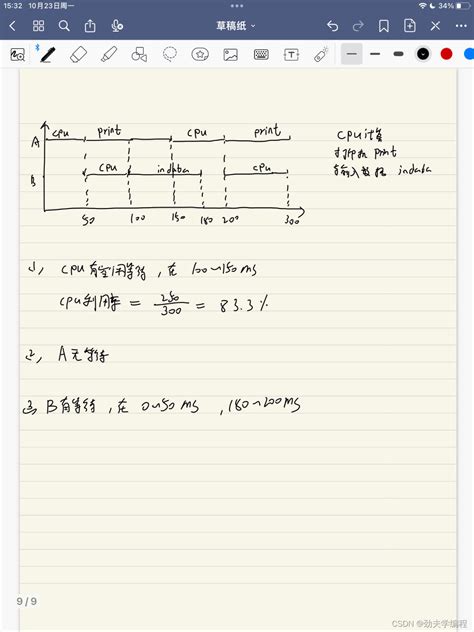 15:32 10月23日周一
34%
草稿纸
A cpu print cpu print
B cpu indaba cpu
50 100 150 180 200 300
CPU计算
打印机 print
输入数据 indaba
1, CPU有空闲等待, 在 100~150ms
CPU利用率 = 250/300 = 83.3%
2, A无等待
3, B有等待, 在 0~50ms, 180~200ms
9/9
CSDN @劲夫学编程